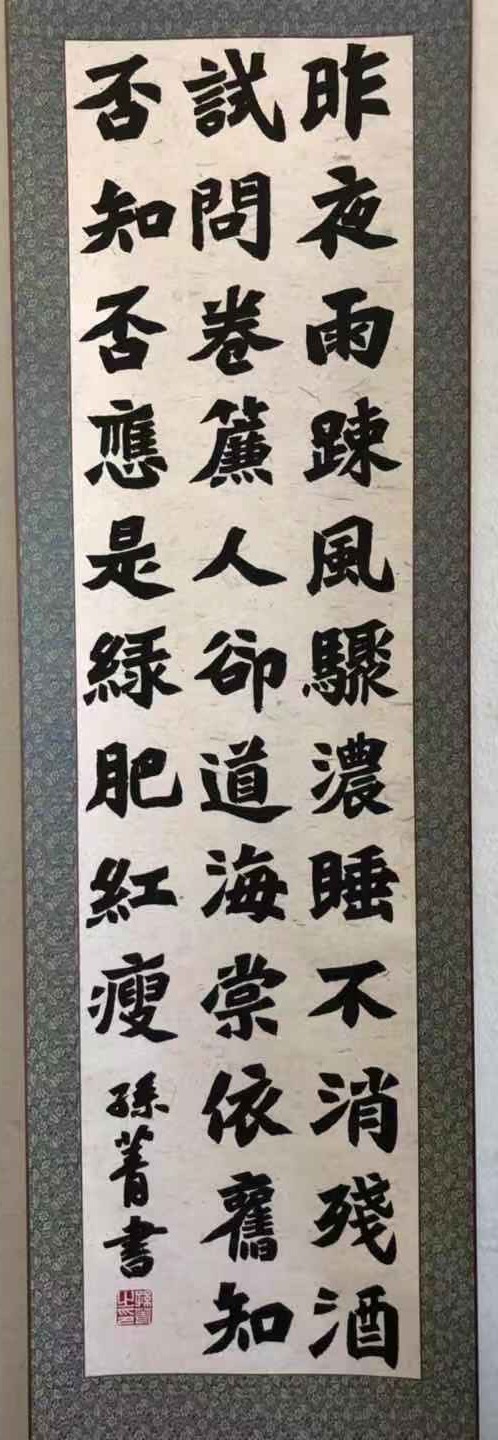 昨夜雨踈風驟濃睡不消殘酒
試問卷簾人卻道海棠依舊知
否知否應是緑肥紅瘦
孫菁書